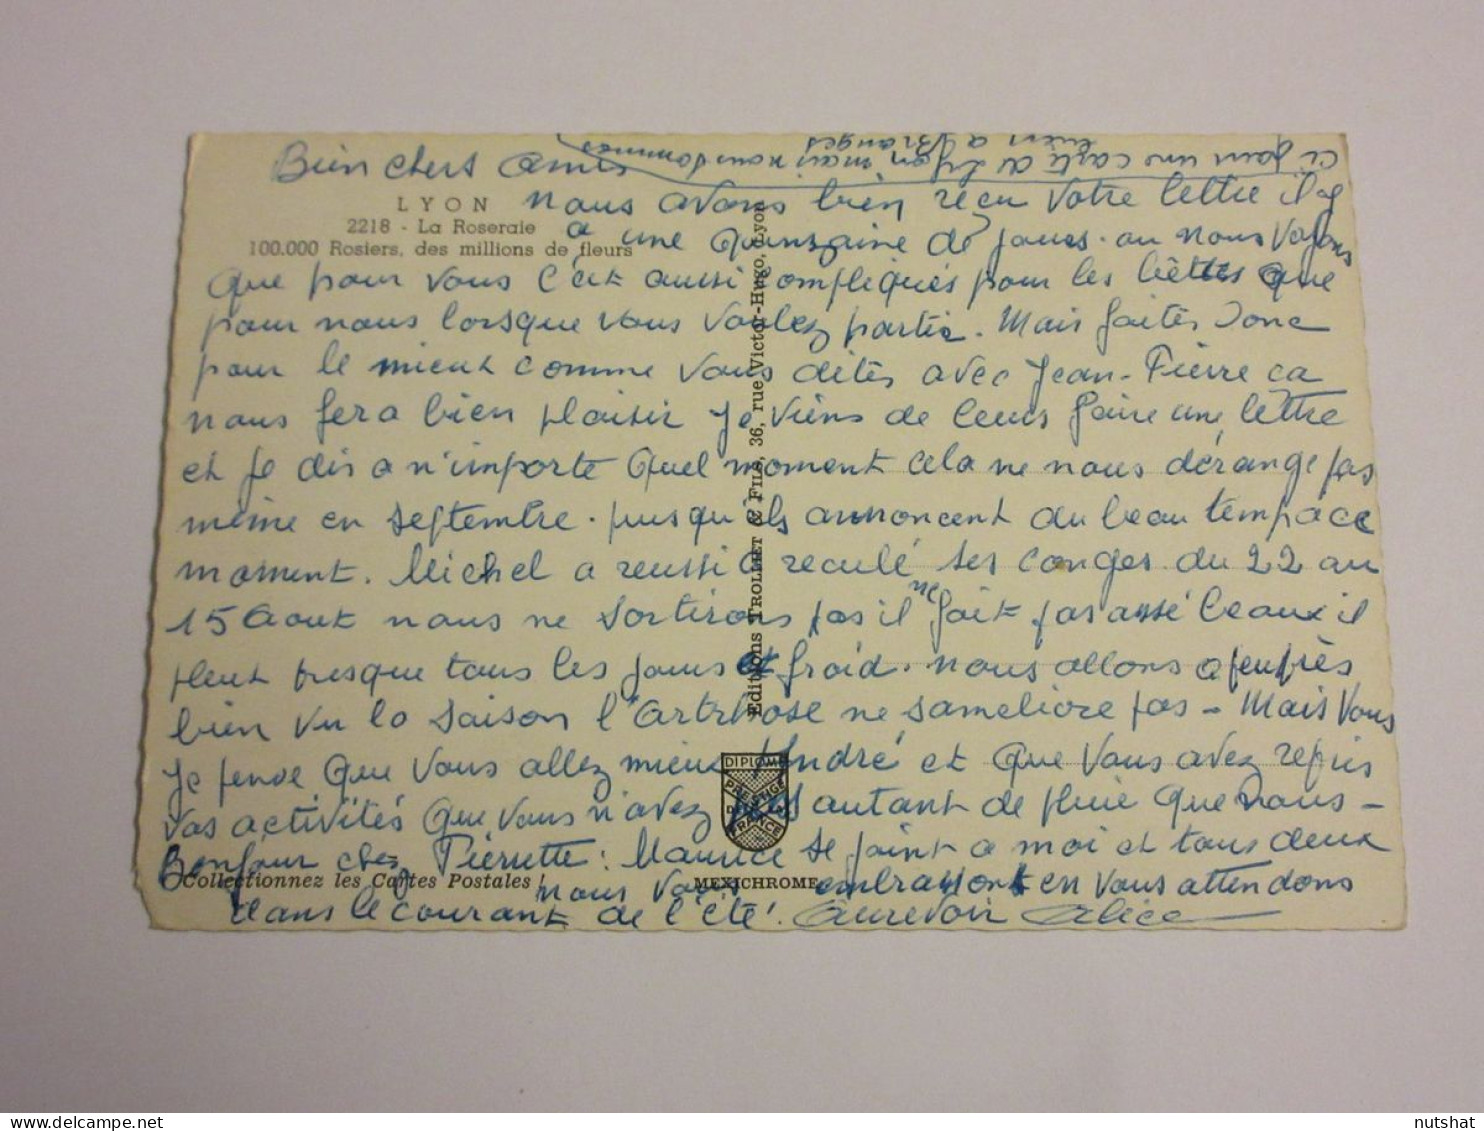 Bien chers amis
ci join une carte de Lyon mais nous sommes
bien a Branges
LYON
2218 - La Roseraie
100.000 Rosiers, des millions de fleurs
nous avons bien recu votre lettre il y
a une quinzaine de jours. on nous voyons
que pour vous c'est aussi compliqués pour les bêttes que
pour nous lorsque vous voulez partir. Mais faites donc
pour le mieux comme vous dites avec Jean-Pierre ca
nous fera bien plaisir je viens de leurs faire une lettre
et je dis a n'importe quel moment cela ne nous dérange pas
même en septembre. puisqu'ils annoncent du beau temp a ce
moment. Michel a reussi a reculé ses conges du 22 au
15 Aout nous ne sortirons pas il ne fait pas assé beaux il
pleut presque tous les jours et froid. nous allons a peu près
bien vu la saison l'Artrhose ne sameliore pas - Mais vous
je pense que vous allez mieux André et que vous avez repris
vos activités que vous n'avez pas autant de pluie que nous -
Bonjour chez Pierrette: Maurice se joint a moi et tous deux
nous vous embrassont en vous attendons
dans le courant de l'été! Aurevoir Alice
Editions TROLLIET & FILS, 36, rue Victor-Hugo, Lyon
DIPLOME
PRESTIGE
DE LA
FRANCE
Collectionnez les Cartes Postales !
MEXICHROME
delcampe.net
nutshat